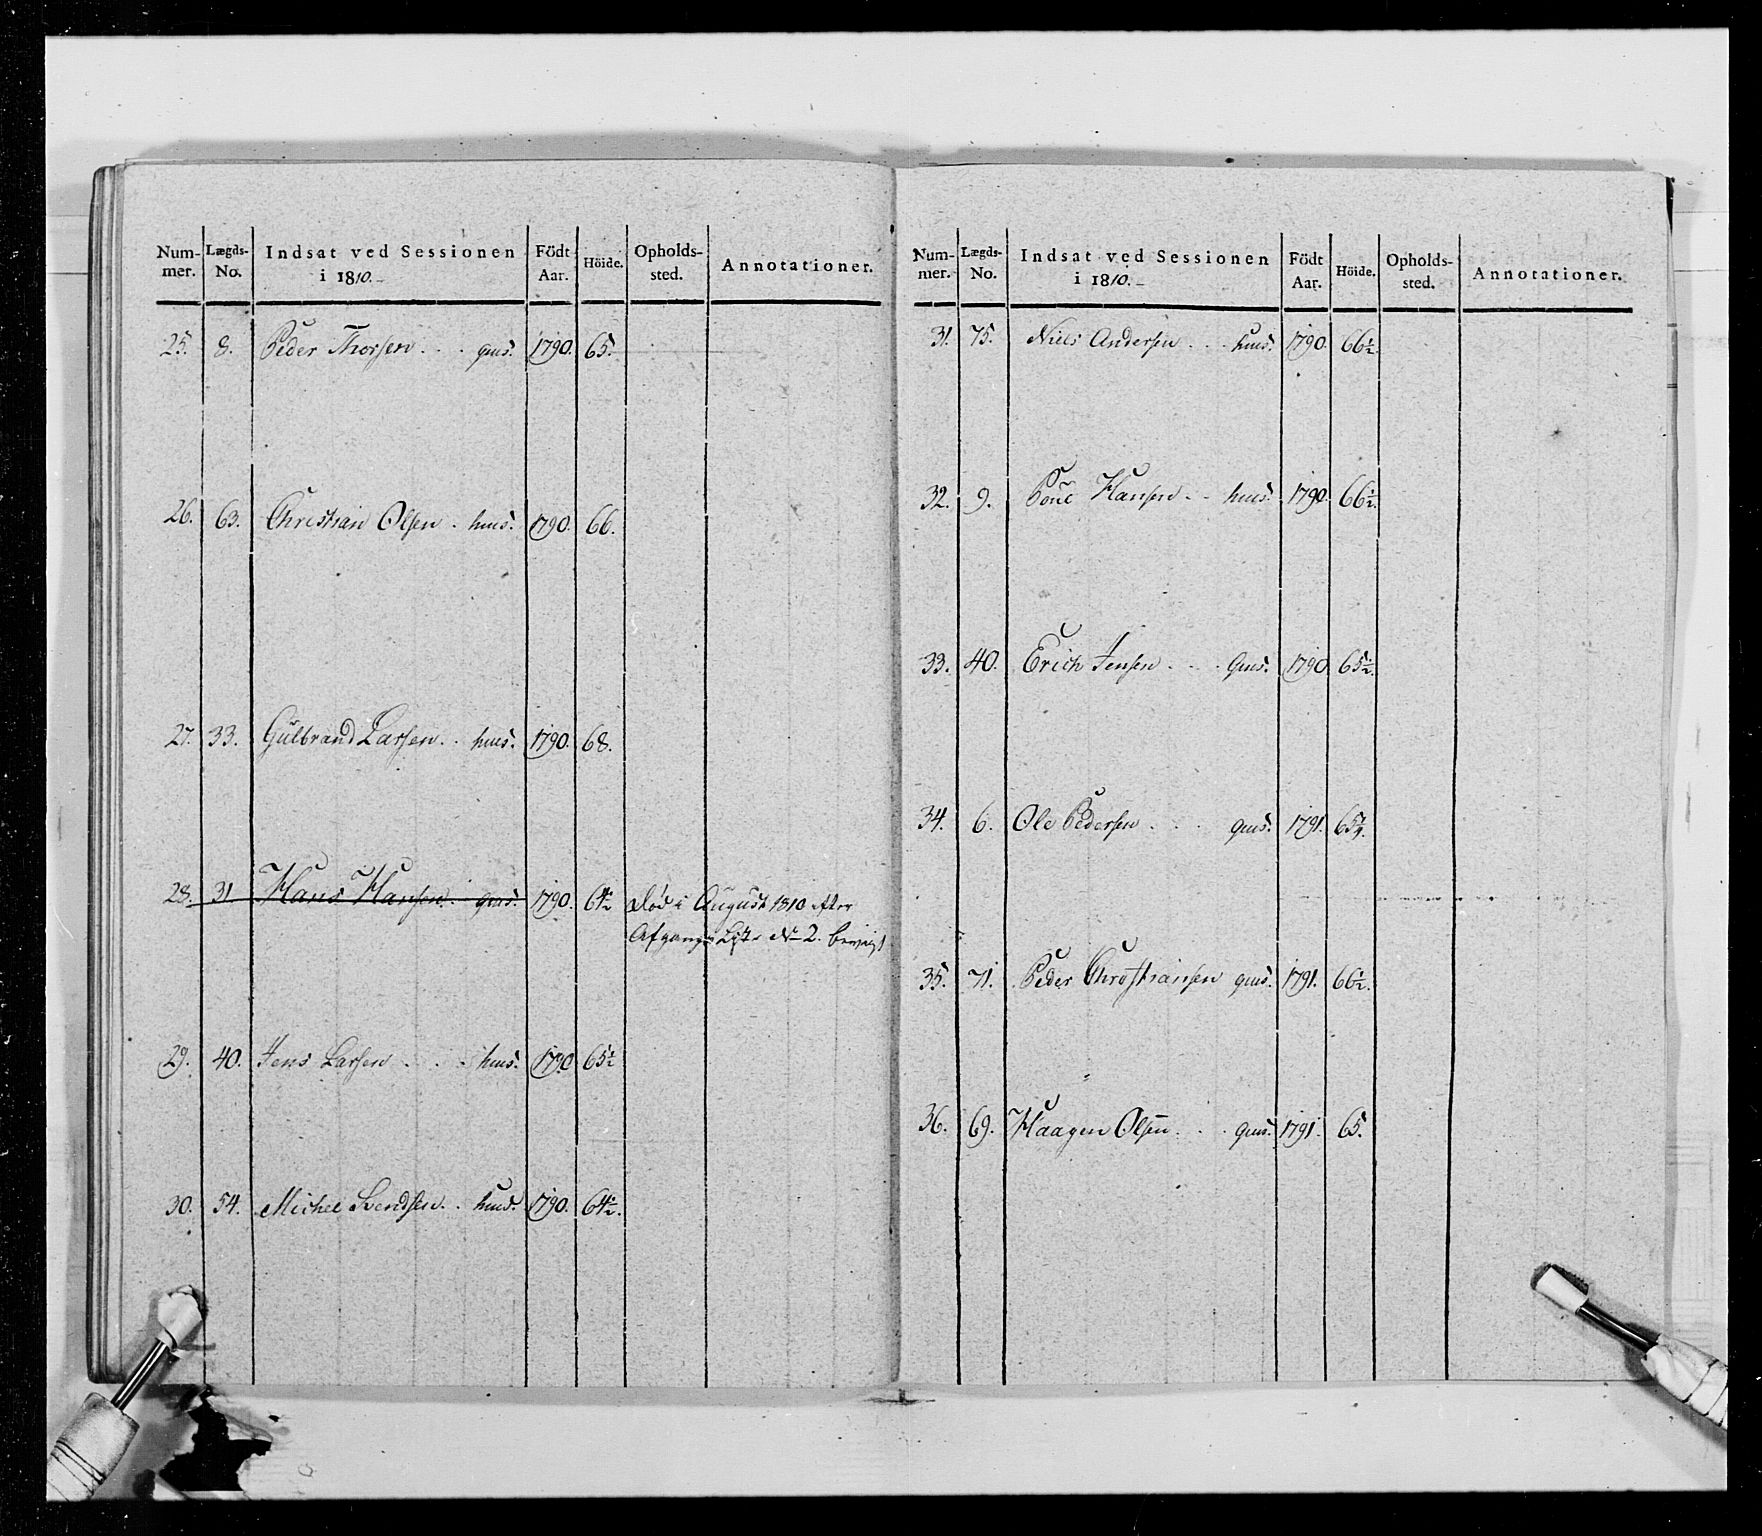 Num-
mer.
Lægds-
No.
Indsat ved Sessionen
i 1810.
Födt
Aar.
Höide.
Opholds-
sted.
Annotationer.
25. 8. Peder Thorsen . . . gms. 1790. 65.
26. 63. Christian Olsen . huus. 1790. 66.
27. 33. Gulbrand Larsen . . huus. 1790. 68.
28. 31 Hans Hansen . gms. 1790. 64½ Død i August 1810 efter
Afgangs Liste No 2.
29. 40. Jens Larsen . . . huus. 1790 65½
30. 54. Michel Svendsen . . huus. 1790. 64½.
Num-
mer.
Lægds-
No.
Indsat ved Sessionen
i 1810.
Födt
Aar.
Höide.
Opholds-
sted.
Annotationer.
31. 75. Niels Andersen . . . huus. 1790. 66½.
32. 9. Poul Hansen . . huus. 1790. 66½.
33. 40. Erich Jensen . . . Gms. 1790 65½.
34. 6. Ole Pedersen . . . gms. 1791.
35. 71. Peder Christiansen gms. 1791. 66½.
36. 69. Haagen Olsen . . . gms. 1791. 65.